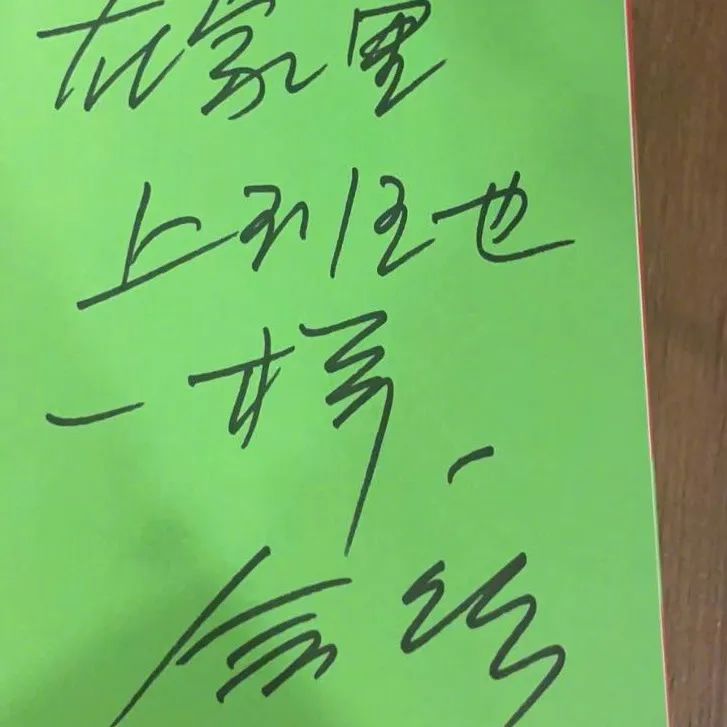 在家里
上班也
一样.